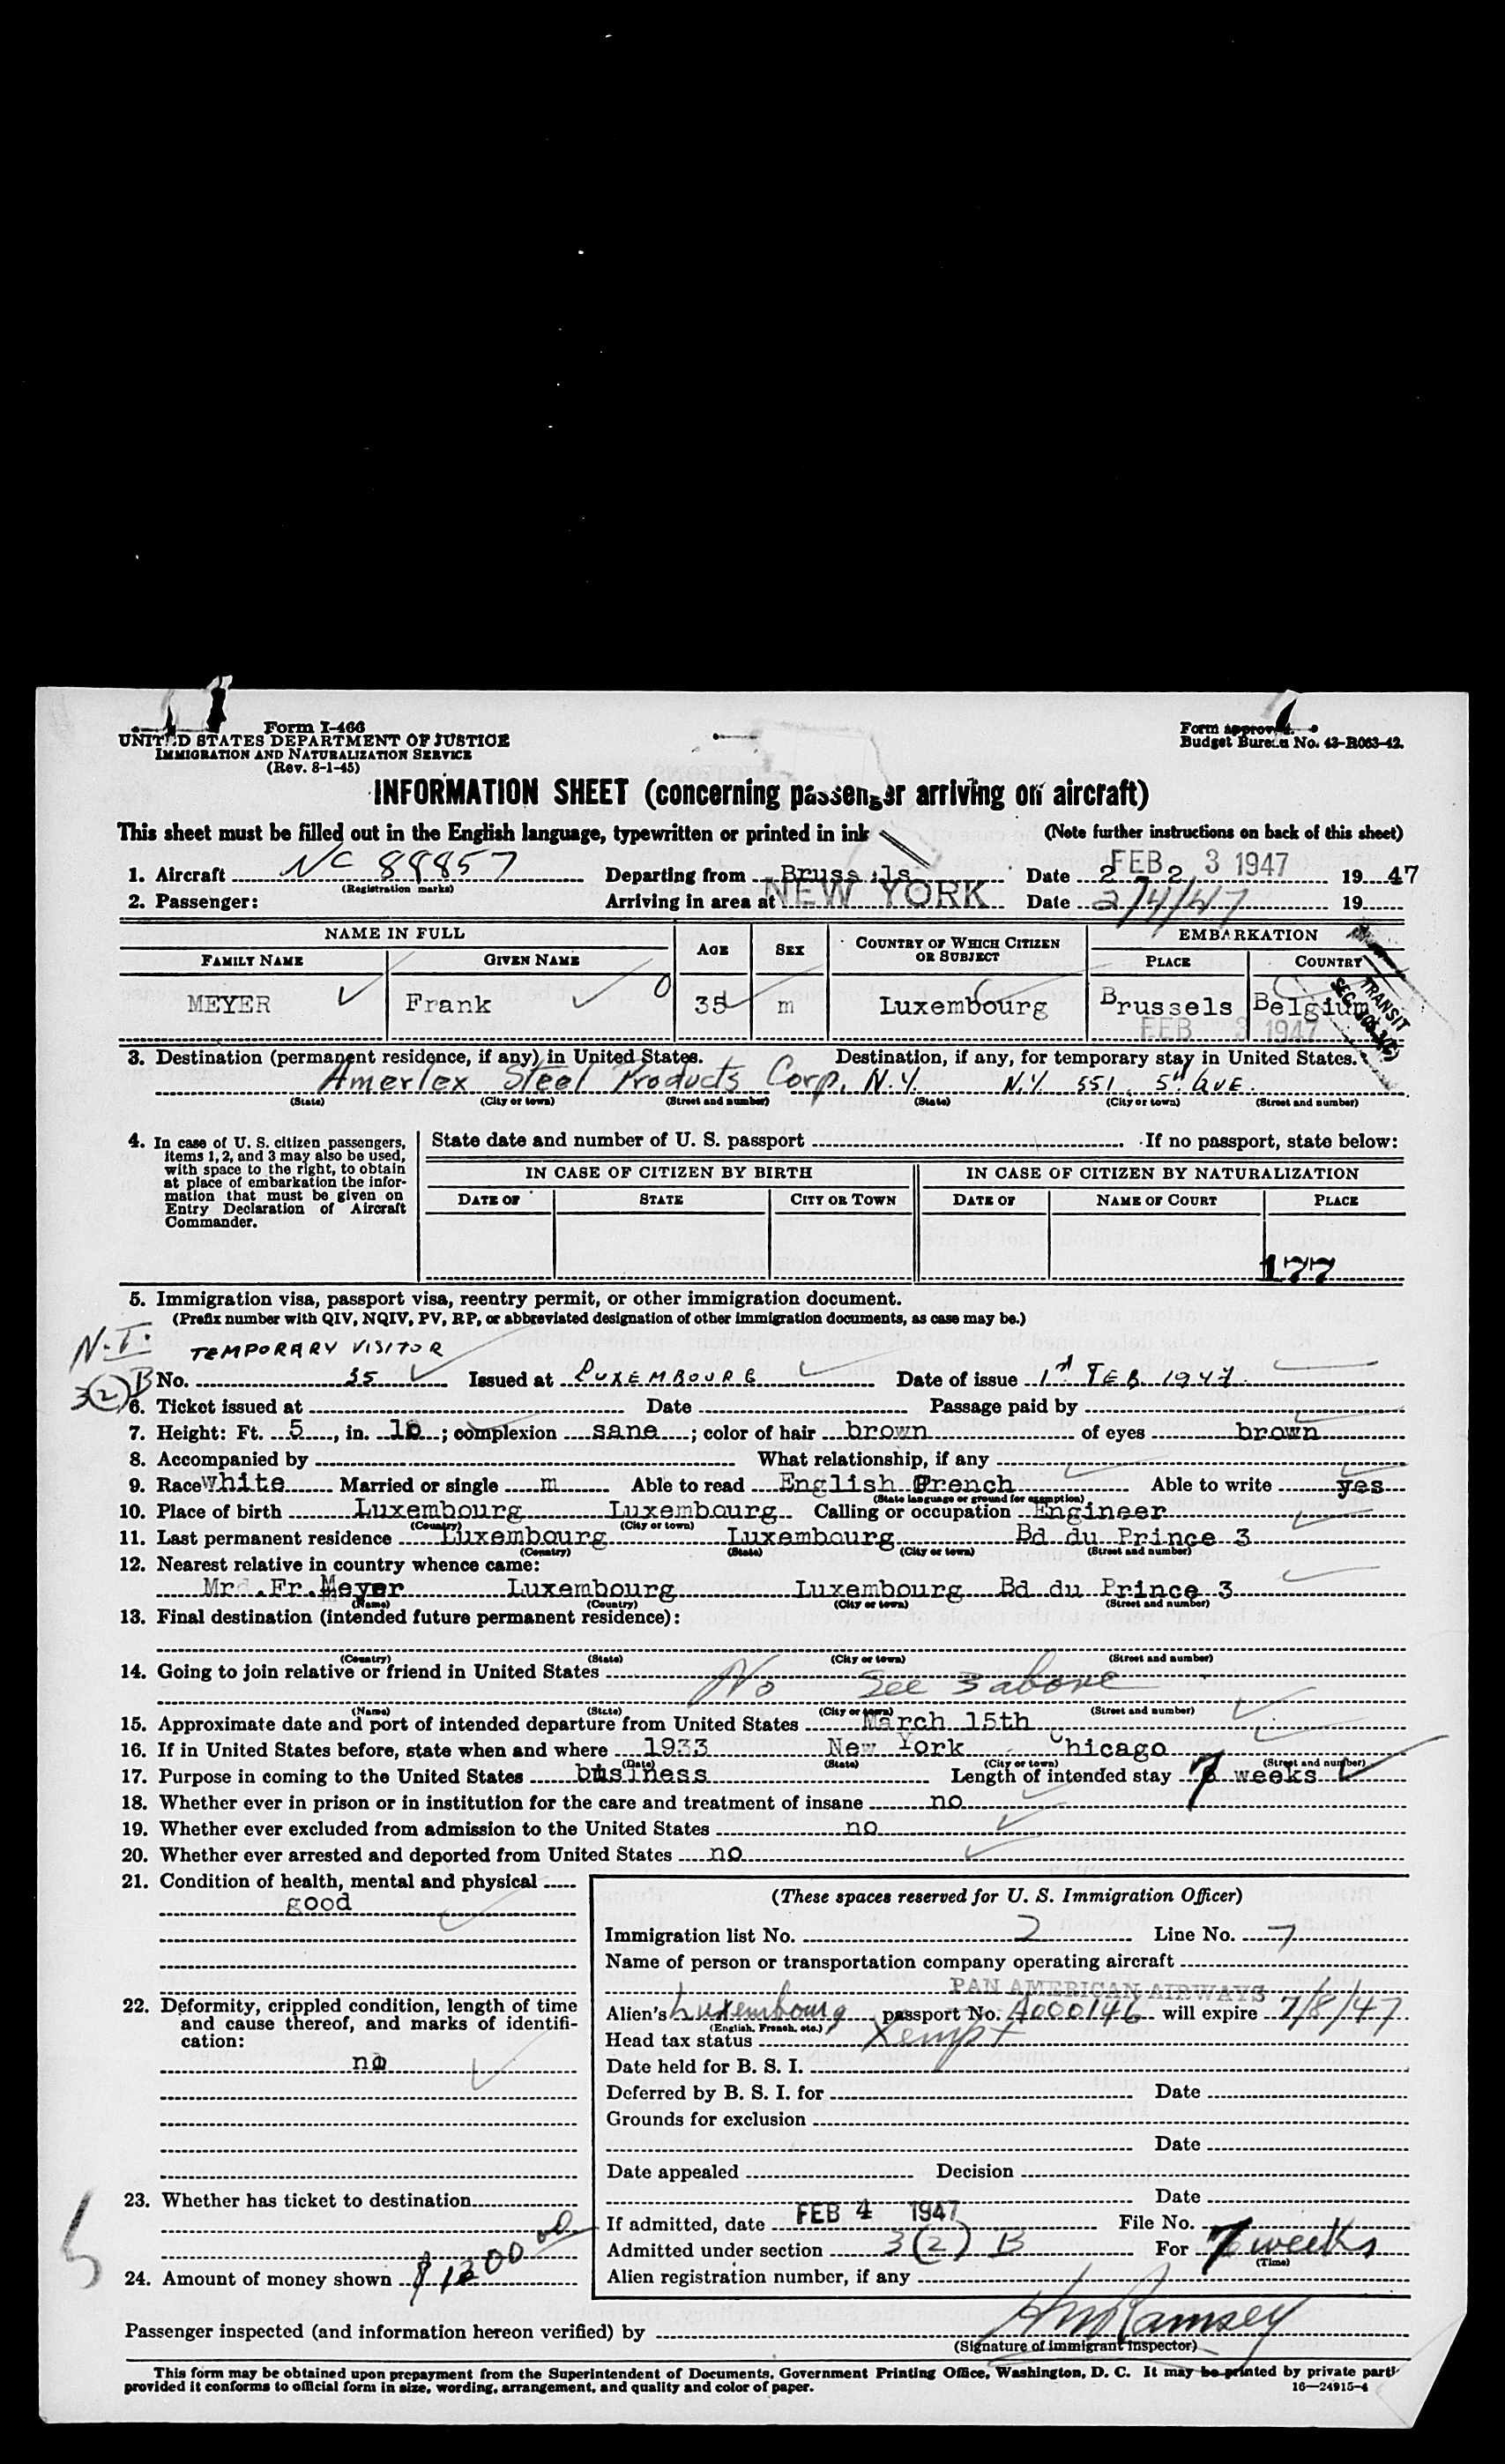 Form I-466
UNITED STATES DEPARTMENT OF JUSTICE
IMMIGRATION AND NATURALIZATION SERVICE
(Rev. 8-1-45)
Form approved.
Budget Bureau No. 43-R063-42.
INFORMATION SHEET (concerning passenger arriving on aircraft)
This sheet must be filled out in the English language, typewritten or printed in ink
(Note further instructions on back of this sheet)
1. Aircraft NC 88857 Departing from Brussels Date 2 2 FEB 3 1947 19 47
(Registration marks)
2. Passenger: Arriving in area at NEW YORK Date 2/4/47 19
NAME IN FULL AGE SEX COUNTRY OF WHICH CITIZEN OR SUBJECT EMBARKATION
FAMILY NAME GIVEN NAME PLACE COUNTRY
MEYER Frank 35 m Luxembourg Brussels Belgium
TRANSIT
FEB 3 1947
3. Destination (permanent residence, if any) in United States. Destination, if any, for temporary stay in United States.
Amerlex Steel Products Corp. N.Y. N.Y. 551 5th Ave.
(State) (City or town) (Street and number) (State) (City or town) (Street and number)
4. In case of U. S. citizen passengers, items 1, 2, and 3 may also be used, with space to the right, to obtain at place of embarkation the information that must be given on Entry Declaration of Aircraft Commander.
State date and number of U. S. passport If no passport, state below:
IN CASE OF CITIZEN BY BIRTH IN CASE OF CITIZEN BY NATURALIZATION
DATE OF STATE CITY OR TOWN DATE OF NAME OF COURT PLACE
177
5. Immigration visa, passport visa, reentry permit, or other immigration document.
(Prefix number with QIV, NQIV, PV, RP, or abbreviated designation of other immigration documents, as case may be.)
N.I. TEMPORARY VISITOR
3(2)B No. 35 Issued at LUXEMBOURG Date of issue 1st FEB. 1947
6. Ticket issued at Date Passage paid by
7. Height: Ft. 5, in. 10; complexion sane; color of hair brown of eyes brown
8. Accompanied by What relationship, if any
9. Race white Married or single m Able to read English French Able to write yes
(State language or ground for exemption)
10. Place of birth Luxembourg Luxembourg Calling or occupation Engineer
(Country) (City or town)
11. Last permanent residence Luxembourg Luxembourg Bd du Prince 3
(Country) (State) (City or town) (Street and number)
12. Nearest relative in country whence came:
Mr. Fr. Meyer Luxembourg Luxembourg Bd du Prince 3
(Name) (Country) (City or town) (Street and number)
13. Final destination (intended future permanent residence):
(Country) (State) (City or town) (Street and number)
14. Going to join relative or friend in United States No See 3 above
(Name) (State) (City or town) (Street and number)
15. Approximate date and port of intended departure from United States March 15th
16. If in United States before, state when and where 1933 New York Chicago
(Date) (State) (City or town) (Street and number)
17. Purpose in coming to the United States business Length of intended stay 7 weeks
18. Whether ever in prison or in institution for the care and treatment of insane no
19. Whether ever excluded from admission to the United States no
20. Whether ever arrested and deported from United States no
21. Condition of health, mental and physical
good
22. Deformity, crippled condition, length of time and cause thereof, and marks of identification:
no
23. Whether has ticket to destination
24. Amount of money shown $1200 00
5
(These spaces reserved for U. S. Immigration Officer)
Immigration list No. 2 Line No. 7
Name of person or transportation company operating aircraft
PAN AMERICAN AIRWAYS
Alien's Luxembourg passport No. A000146 will expire 7/8/47
(English, French, etc.)
Head tax status Xempt
Date held for B. S. I.
Deferred by B. S. I. for Date
Grounds for exclusion
Date
Date appealed Decision
Date
If admitted, date FEB 4 1947 File No.
Admitted under section 3(2) B For 7 weeks
(Time)
Alien registration number, if any
Passenger inspected (and information hereon verified) by Ramsey
(Signature of immigrant inspector)
This form may be obtained upon prepayment from the Superintendent of Documents, Government Printing Office, Washington, D. C. It may be printed by private parti
provided it conforms to official form in size, wording, arrangement, and quality and color of paper. 16—24915-4